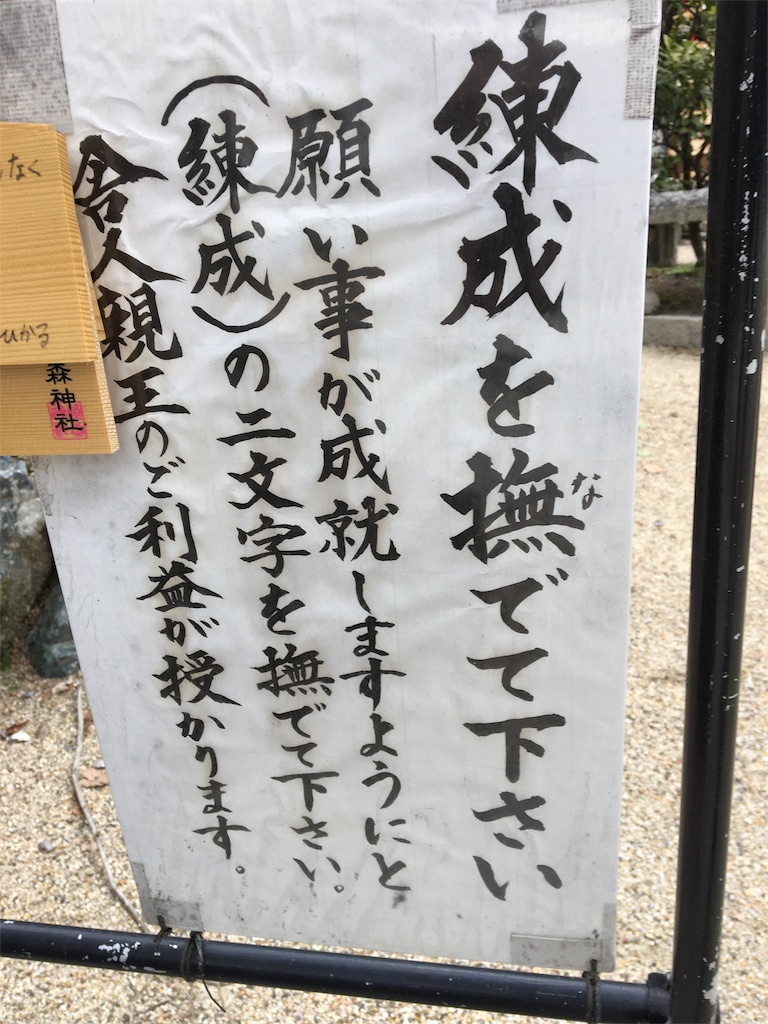 練成を撫でて下さい
な
願い事が成就しますようにと
(練成)の二文字を撫でて下さい。
舎人親王のご利益が授かります。
なく
ひかる
森神社